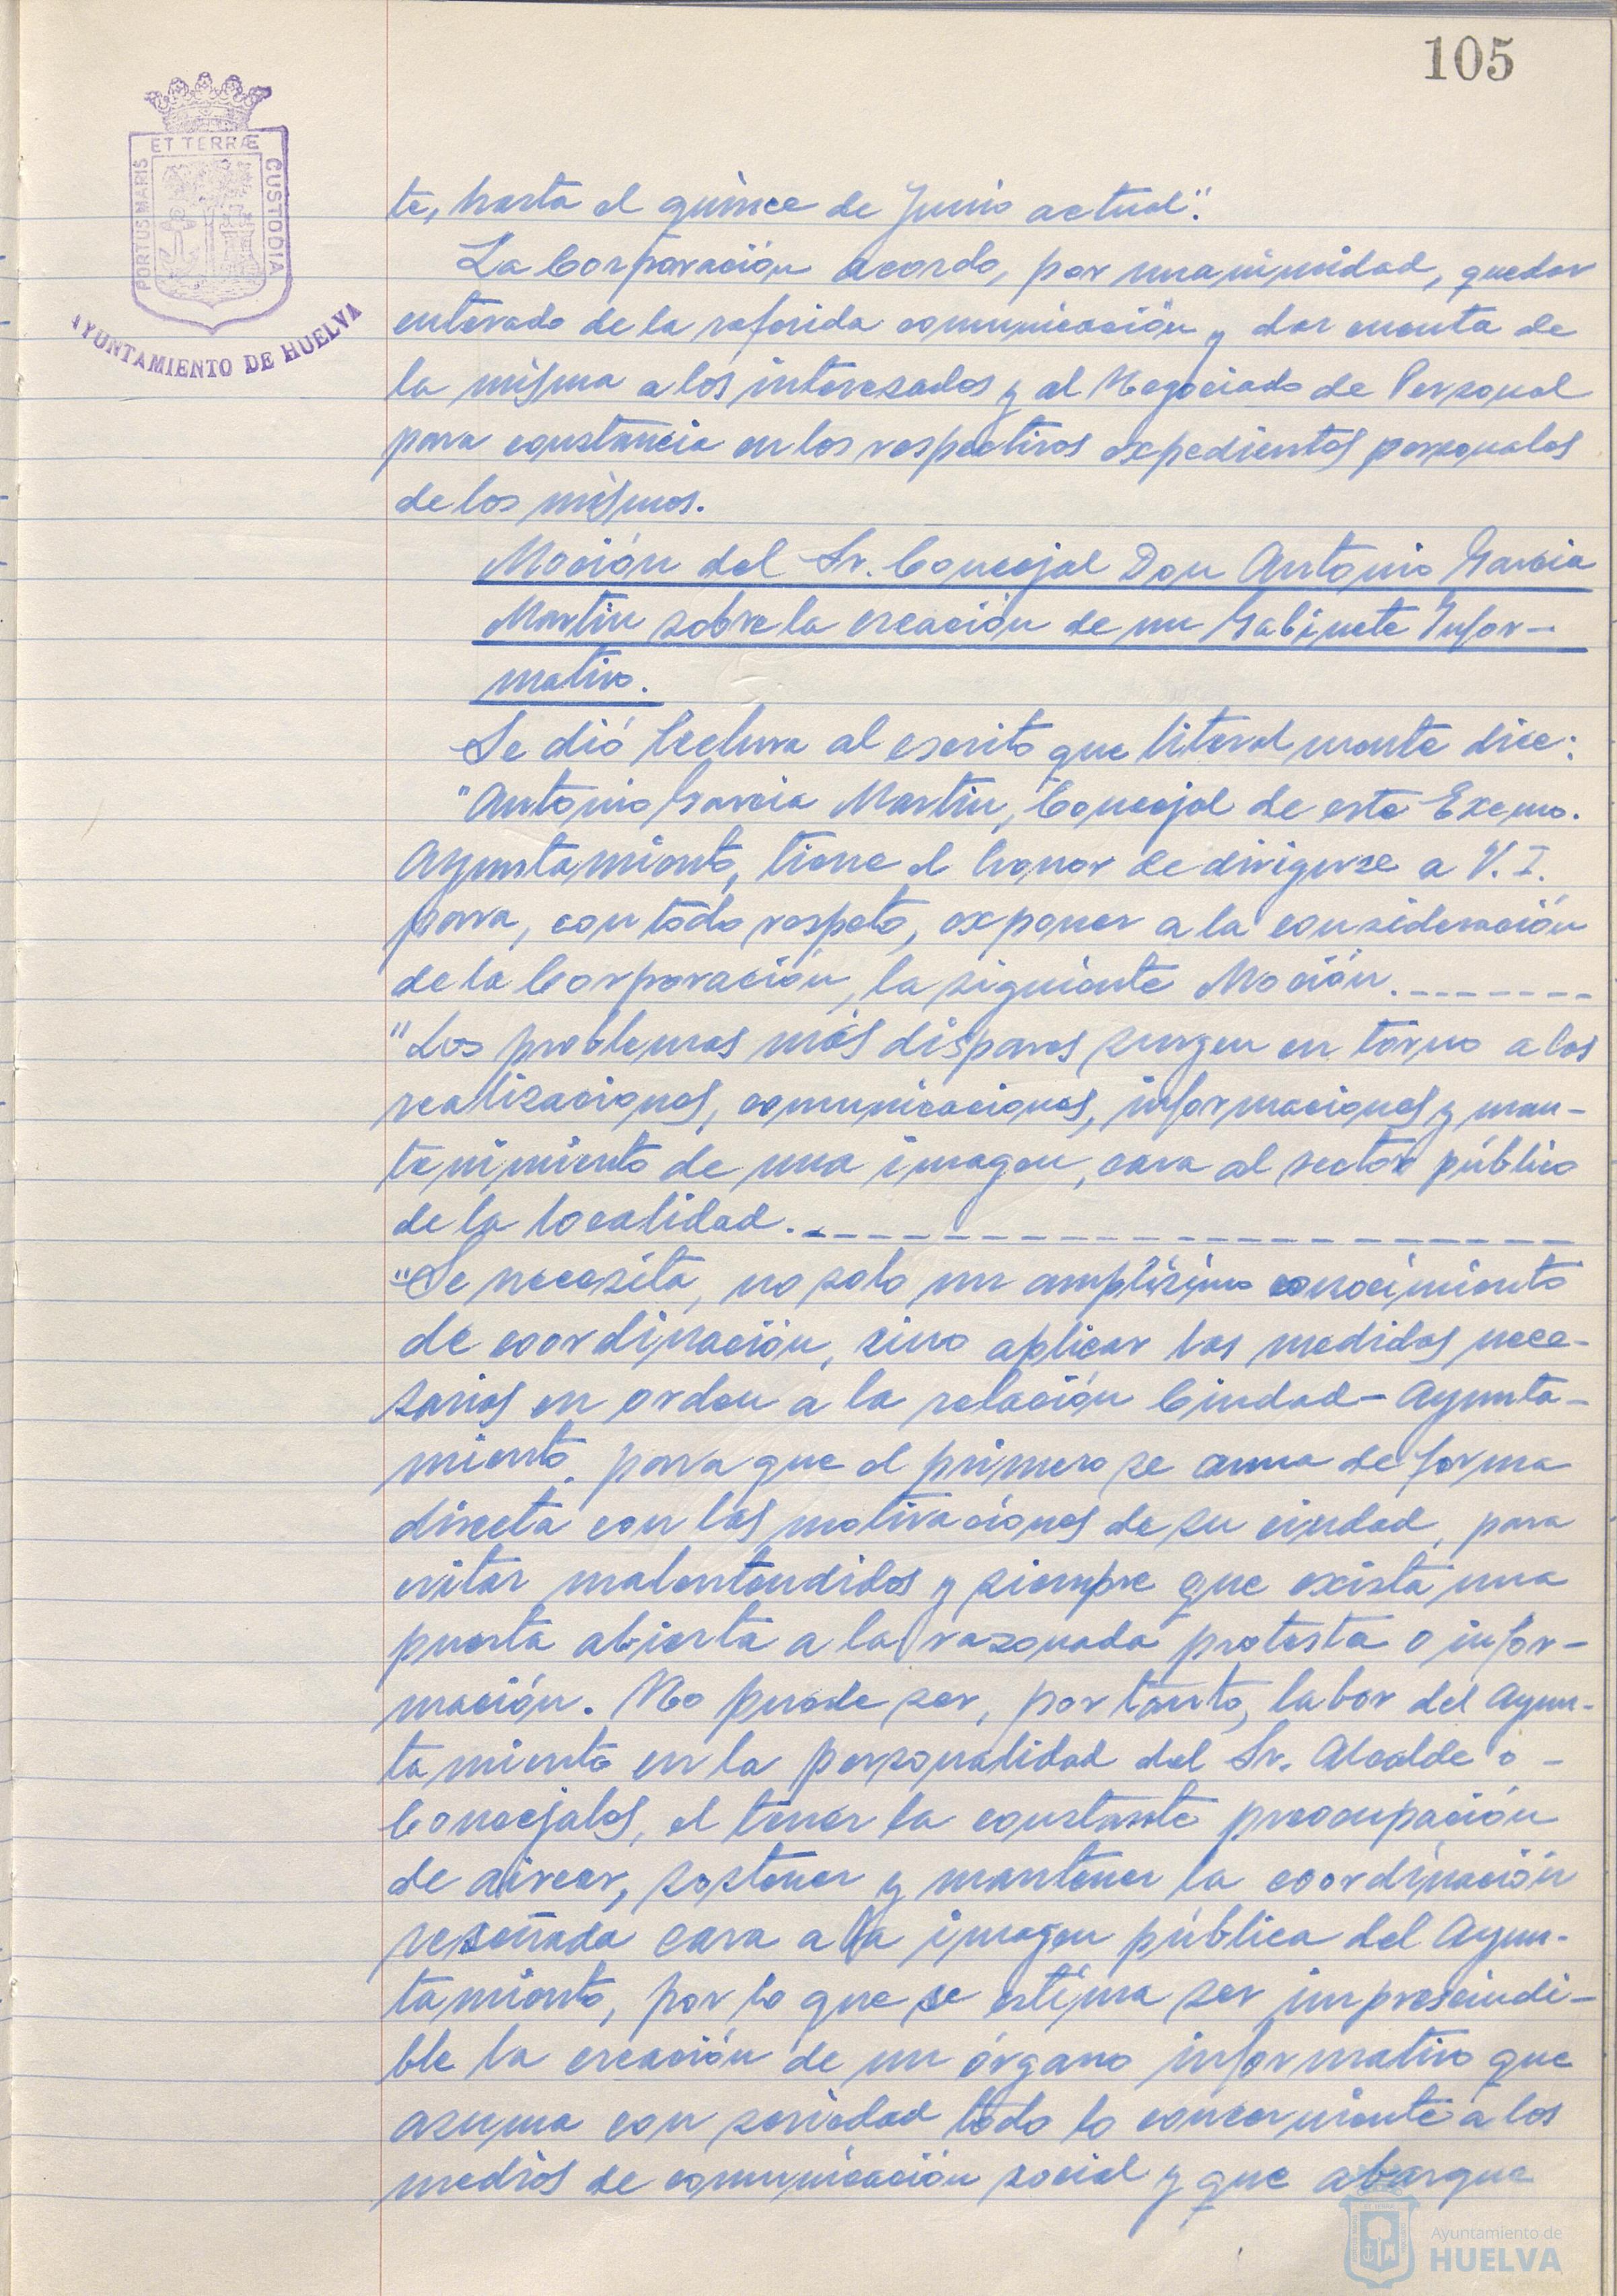 105
ET TERRÆ
PORTUS MARIS
CUSTODIA
AYUNTAMIENTO DE HUELVA
te, hasta el quince de Junio actual".
La Corporación acordó, por unanimidad, quedar
enterado de la referida comunicación y dar cuenta de
la misma a los interesados y al Negociado de Personal
para constancia en los respectivos expedientes personales
de los mismos.
Moción del Sr. Concejal Don Antonio García
Martin sobre la creación de un Gabinete Infor-
mativo.
Se dió lectura al escrito que literalmente dice:
"Antonio García Martin, Concejal de este Excmo.
Ayuntamiento, tiene el honor de dirigirse a V. I.
para, con todo respeto, exponer a la consideración
de la Corporación, la siguiente Moción. --------
"Los problemas más dispares surgen en torno a las
realizaciones, comunicaciones, informaciones y man-
tenimiento de una imagen, cara al sector público
de la localidad. --------------------
"Se necesita, no solo un amplísimo conocimiento
de coordinación, sino aplicar las medidas nece-
sarias en orden a la relación Ciudad-Ayunta-
miento para que el primero se auna de forma
directa con las motivaciones de su ciudad, para
evitar malentendidos y siempre que exista una
puerta abierta a la razonada protesta o infor-
mación. No puede ser, por tanto, labor del Ayun-
tamiento en la personalidad del Sr. Alcalde o -
Concejales, el tener la constante preocupación
de airear, sostener y mantener la coordinación
reseñada cara a la imagen pública del Ayun-
tamiento, por lo que se estima ser imprescindi-
ble la creación de un órgano informativo que
asuma con seriedad todo lo concerniente a los
medios de comunicación social y que abarque
Ayuntamiento de
HUELVA